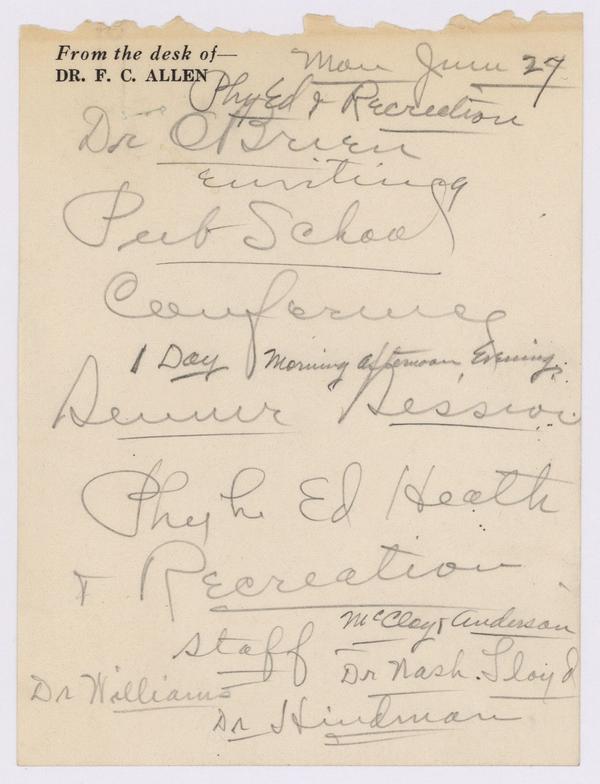 From the desk of—
DR. F. C. ALLEN
Mon June 27
Phy Ed & Recreation
Dr O'Brien
Pub School
Conference
1 Day Morning afternoon Evening
Session
Phy Ed Health
& Recreation
McCloy & Anderson
Staff Dr Nash. Lloyd
Dr Williams
Dr Hindman